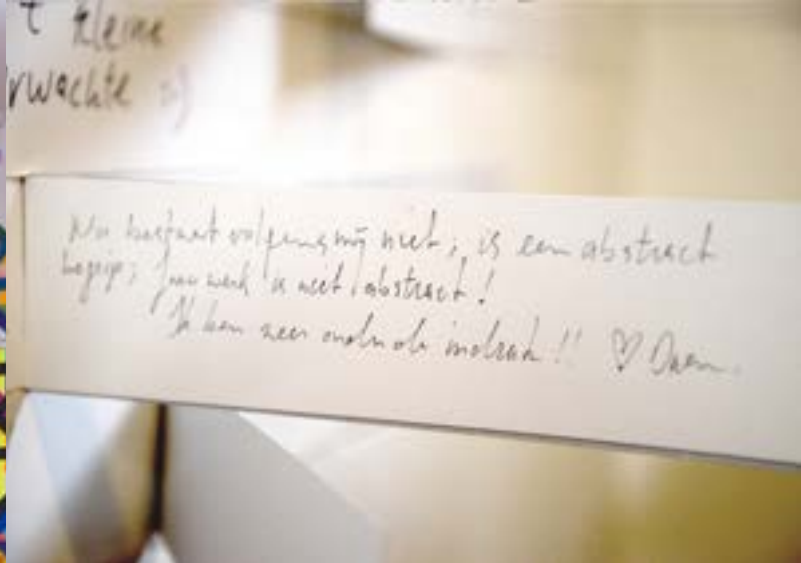 t kleine
rwachte :)
Nu bestaat volgens mij niet; is een abstract
begrip; Jouw werk is niet abstract!
Ik ben zeer onder de indruk!! ♡ Daen.